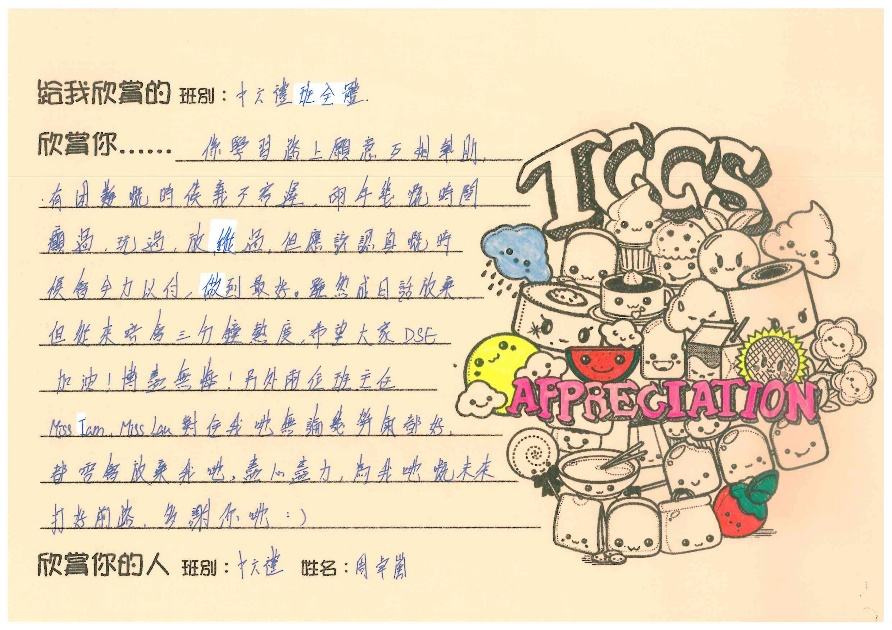 給我欣賞的 班別：中六禮班全體.
欣賞你…… 係學習路上願意互相幫助,
有困難嘅時侯義不容遲, 兩年幾嘅時間
癲過, 玩過, 放縱過, 但應該認真嘅時
候會全力以付, 做到最好。雖然成日話放棄
但從來唔係三分鐘熱度, 希望大家DSE
加油！博盡無悔！另外兩位班主任
Miss Tam, Miss Lau 對住我哋無論幾勞氣都好,
都唔會放棄我哋, 盡心盡力, 為我哋嘅未來
打好前路, 多謝你哋 :)
欣賞你的人 班別：中六禮 姓名：周
ICCS
APPRECIATION